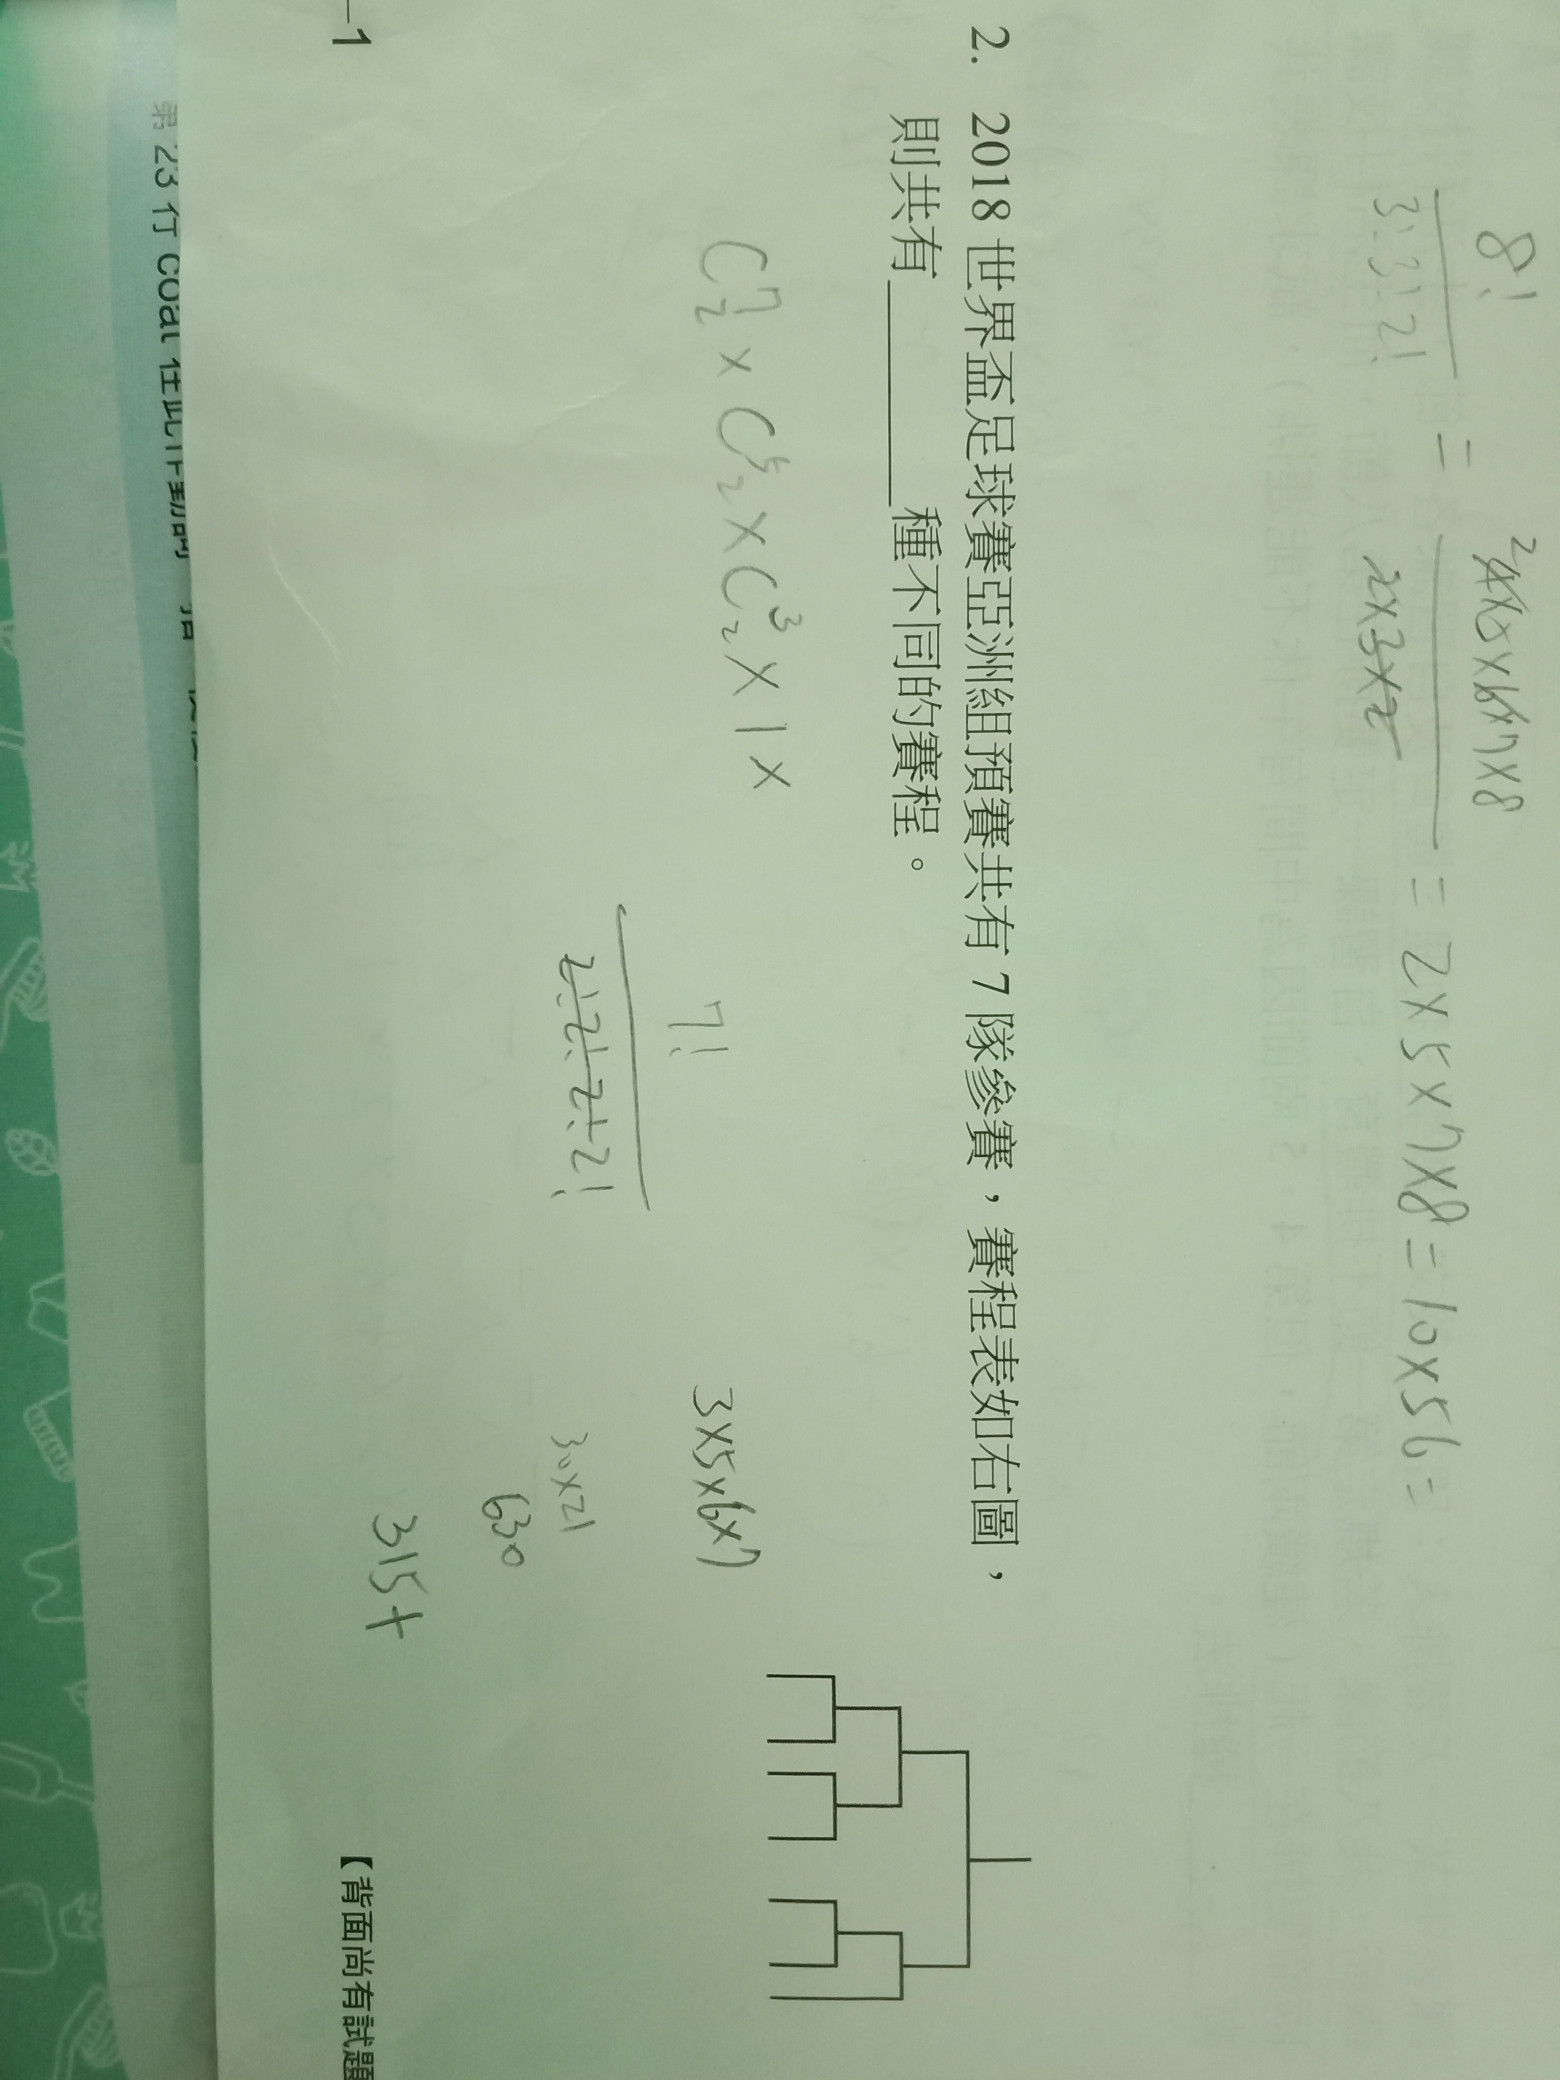 8! / 3!3!2! = 4×5×6×7×8 / 2×3×2 = 2×5×7×8=10×56=
2
2. 2018 世界盃足球賽亞洲組預賽共有 7 隊參賽，賽程表如右圖，
則共有________種不同的賽程。
C⁷₂×C⁵₂×C³₂×1×
7! / 2!2!2!2!
3×5×6×7
30×21
630
315+
–1
【背面尚有試題
第 23 行 coal 在此作動詞